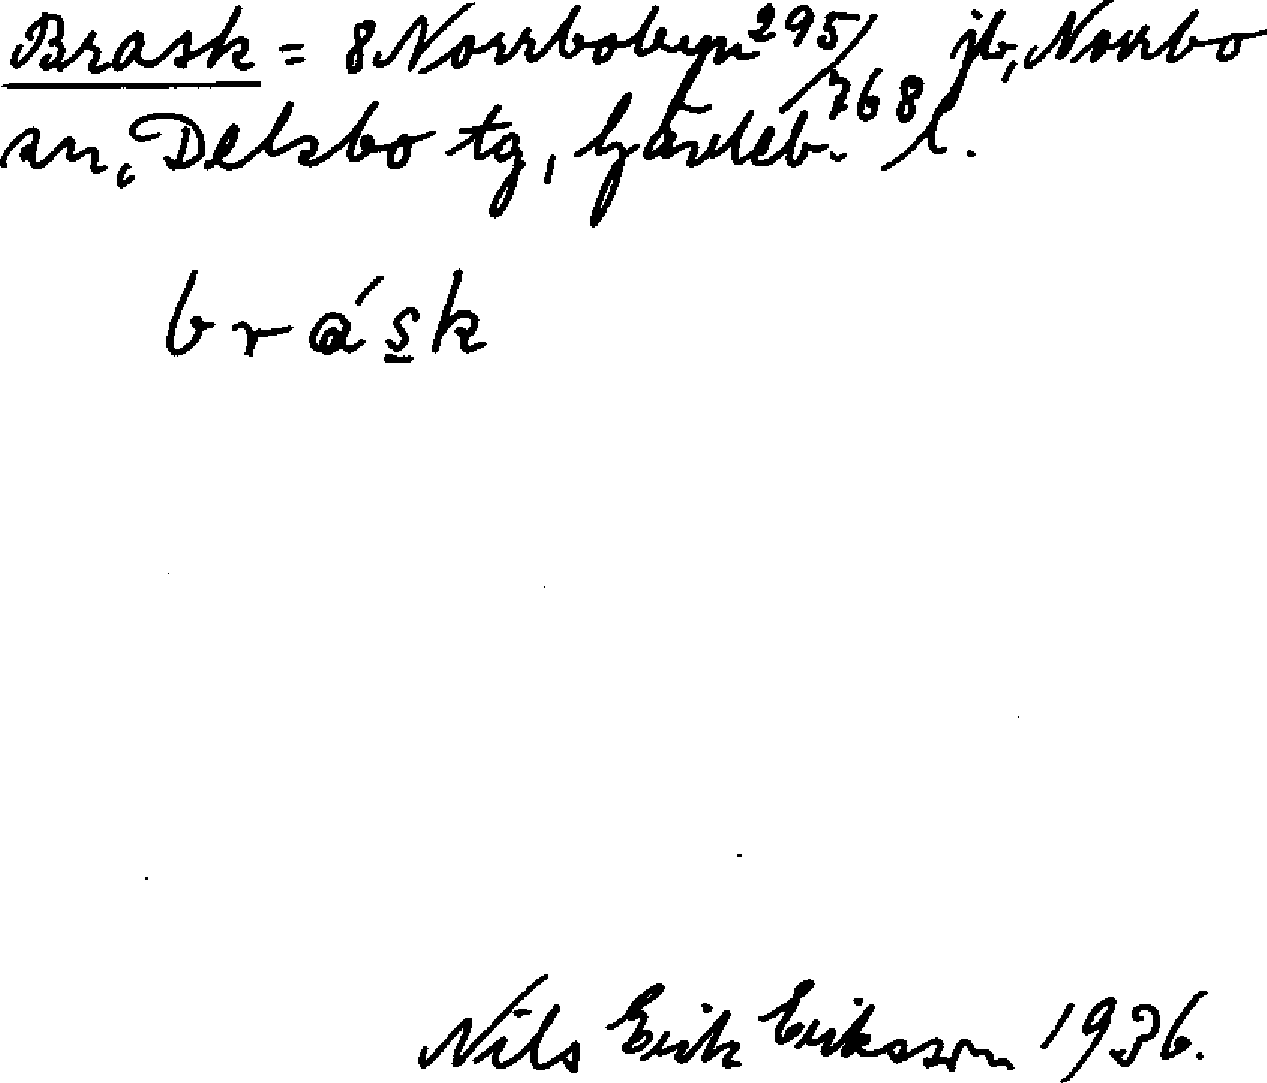 Brask = 8 Norrbobyn 295/768 jb, Norrbo
sn, Delsbo tg, Gävleb. l.
brásk
Nils Erik Eriksson 1936.